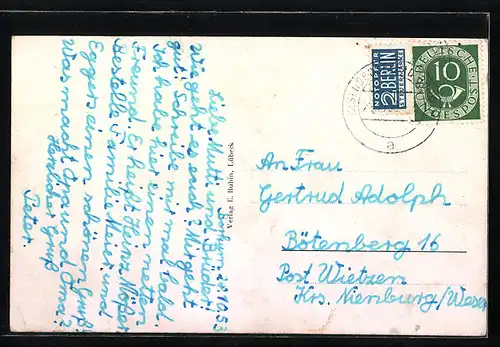 Bochum, 20.10.53
Liebe Mutti und Brüder!
Wie geht es euch? Mir geht es
gut. Schreibe mir mal bald.
Ich habe hier einen netten
Freund. Er heißt Heinz Möper.
Bestelle Familie Meier und
Eggers einen schönen Gruß!
Was macht Opa und Oma?
Herzlicher Gruß
Peter.
Verlag E. Rubin, Lübeck
NOTOPFER
2 BERLIN
STEUERMARKE
DEUTSCHE BUNDESPOST
10
a
An Frau
Gertrud Adolph
Bötenberg 16
Post Wietzen
Krs. Nienburg/Weser